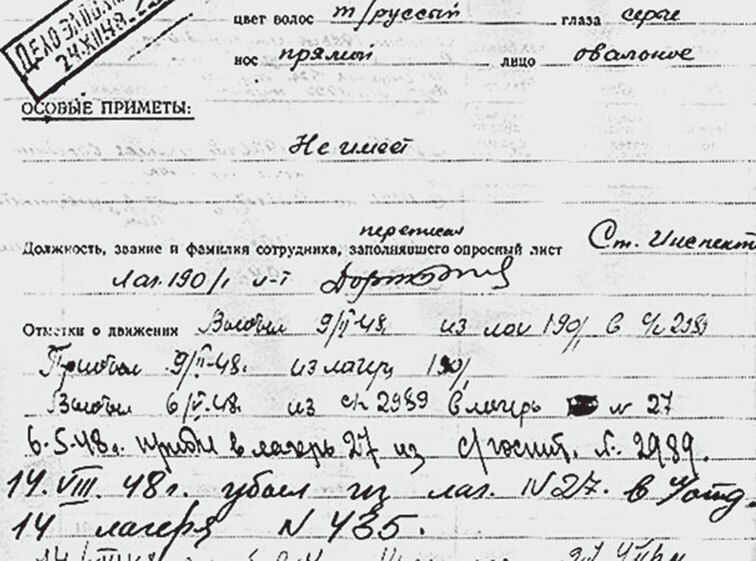 ДЕЛО
24.XII.48
цвет волос т/русый глаза серые
нос прямой лицо овальное
ОСОБЫЕ ПРИМЕТЫ:
Не имеет
переписал
Должность, звание и фамилия сотрудника, заполнявшего опросный лист Ст. Инспект
Лаг. 190/1 л-т
Отметки о движении Выбыл 9/II-48. из лаг 190/1 в с/г 2989
Прибыл 9/II-48г. из лагеря 190/1
Выбыл 6/V-48г. из с/г 2989 в лагерь N 27
6.5.48г. прибыл в лагерь 27 из с/госпит. N. 2989.
14.VIII.48г. убыл из лаг. N 27. в
14 лагеря N 435.